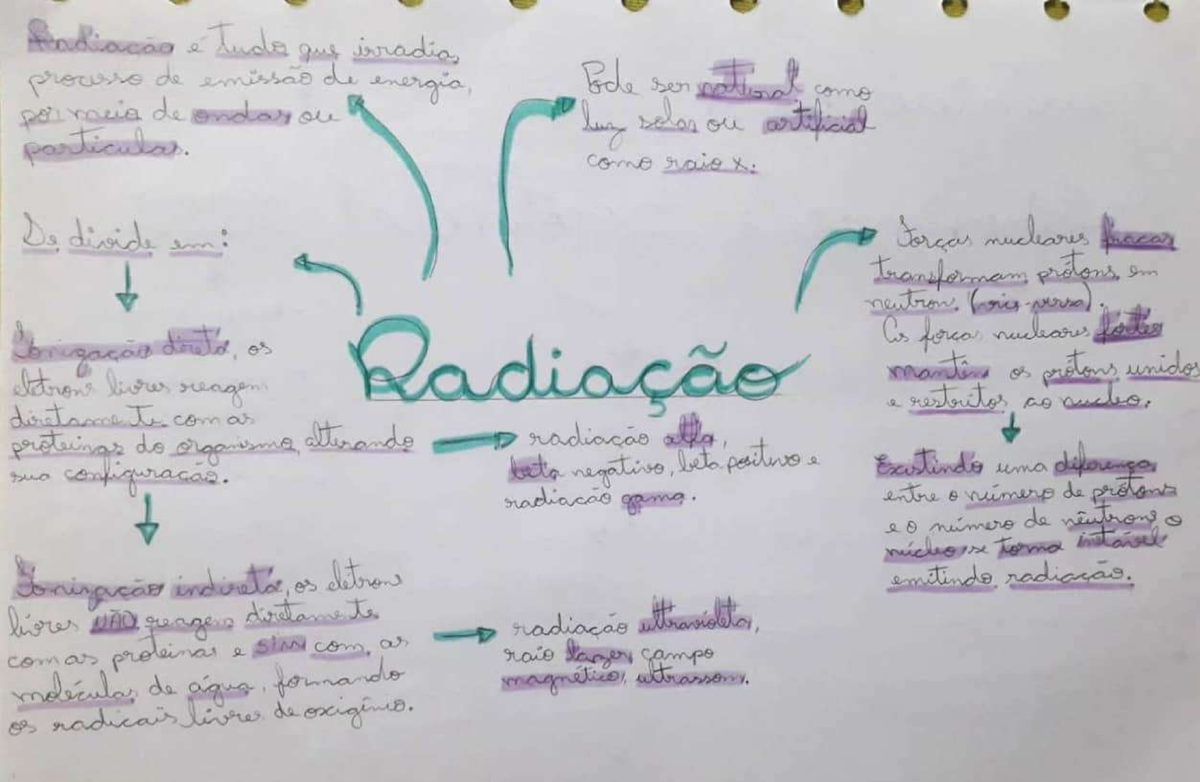 Radiação é tudo que irradia,
processo de emissão de energia,
por meio de ondas ou
particulas.
Pode ser natural como
luz solar ou artificial
como raio x.
Se divide em:
Ionização direta, os
eletrons livres reagem
diretamente com as
proteinas do organismo, alterando
sua configuração.
Ionização indireta, os eletrons
livres NÃO reagem diretamente
com as proteinas e sim com, as
moléculas de água, formando
os radicais livres de oxigênio.
Radiação
radiação alfa,
beta negativo, beta positivo e
radiação gama.
radiação ultravioleta,
raio lazer, campo
magnético, ultrassom.
Forças nucleares fracas
transformam prótons em
neutron (vice-versa).
As forças nucleares fortes
mantêm os prótons unidos
e restritos ao nucleo.
Existindo uma diferença
entre o número de prótons
e o número de nêutrons o
núcleo se torna instável
emitindo radiação.